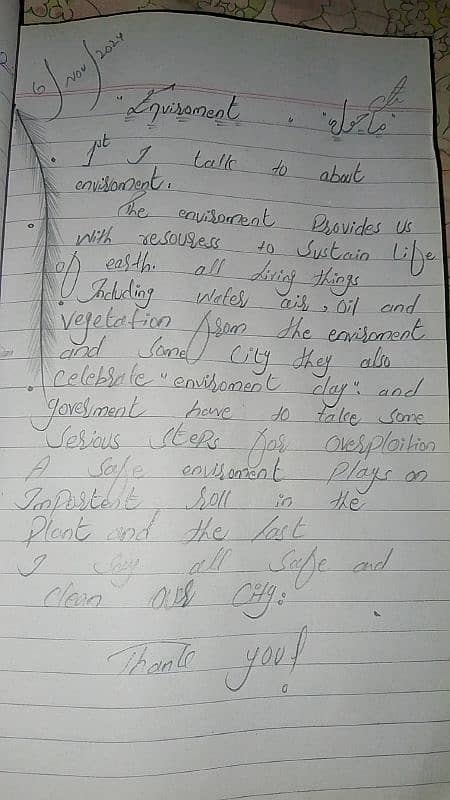 6 Nov 2024
"Enviroment" "ماحول"
1st I talk to about
enviroment.
The enviroment Provides us
With resousess to Sustain life
of easth. all living things
Including Water air, Oil and
vegetation from the enviroment
and Some City they also
Celebrate "enviroment day". and
goverment have to take some
Serious Steps for overploition
A safe enviroment Plays on
Importent roll in the
Plant and the last
I Say all Safe and
Clean our City.
Thank you!